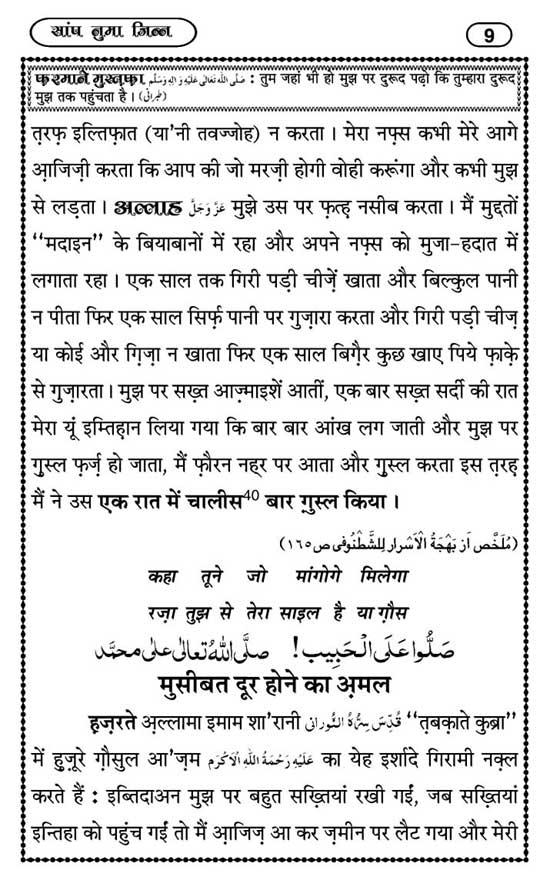 सांप नुमा जिन्न
9
फ़रमाने मुस्त़फ़ा صَلَّى اللّٰهُ تَعَالٰى عَلَيْهِ وَاٰلِهٖ وَسَلَّم : तुम जहां भी हो मुझ पर दुरूद पढ़ो कि तुम्हारा दुरूद
मुझ तक पहुंचता है । (طبرانی)
त़रफ़ इल्तिफ़ात (या'नी तवज्जोह) न करता । मेरा नफ़्स कभी मेरे आगे
आ़जिज़ी करता कि आप की जो मरज़ी होगी वोही करूंगा और कभी मुझ
से लड़ता । अल्लाह عَزَّوَجَلَّ मुझे उस पर फ़त्ह़ नसीब करता । मैं मुद्दतों
"मदाइन" के बियाबानों में रहा और अपने नफ़्स को मुजा-हदात में
लगाता रहा । एक साल तक गिरी पड़ी चीज़ें खाता और बिल्कुल पानी
न पीता फिर एक साल सिर्फ़ पानी पर गुज़ारा करता और गिरी पड़ी चीज़
या कोई और गि़ज़ा न खाता फिर एक साल बिग़ैर कुछ खाए पिये फ़ाक़े
से गुज़ारता । मुझ पर सख़्त आज़्माइशें आतीं, एक बार सख़्त सर्दी की रात
मेरा यूं इम्तिह़ान लिया गया कि बार बार आंख लग जाती और मुझ पर
ग़ुस्ल फ़र्ज़ हो जाता, मैं फ़ौरन नह्र पर आता और ग़ुस्ल करता इस त़रह़
मैं ने उस एक रात में चालीस40 बार ग़ुस्ल किया ।
(مُلَخَّص اَز بَهْجَةُ الْاَسْرار لِلشَّطْنُوفی ص١٦٥)
कहा तूने जो मांगोगे मिलेगा
रज़ा तुझ से तेरा साइल है या ग़ौस
صَلُّوا عَلَى الْحَبِيب! صلَّى اللّٰهُ تعالٰى على محمَّد
मुसीबत दूर होने का अ़मल
ह़ज़रते अ़ल्लामा इमाम शा'रानी قُدِّسَ سِرُّهُ النُّورانی "त़बक़ाते कुब्रा"
में हु़ज़ूरे ग़ौसुल आ'ज़म عَلَيْهِ رَحْمَةُ اللّٰهِ الْاَكْرَم का येह इर्शादे गिरामी नक़्ल
करते हैं : इब्तिदाअन मुझ पर बहुत सख़्तियां रखी गईं, जब सख़्तियां
इन्तिहा को पहुंच गईं तो मैं आ़जिज़ आ कर ज़मीन पर लैट गया और मेरी